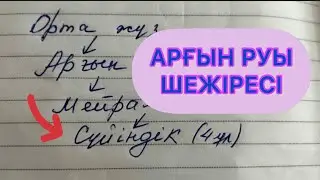 Орта жүз
Арғын
Мейра
Сүйіндік (4 ұл)
АРҒЫН РУЫ
ШЕЖІРЕСІ